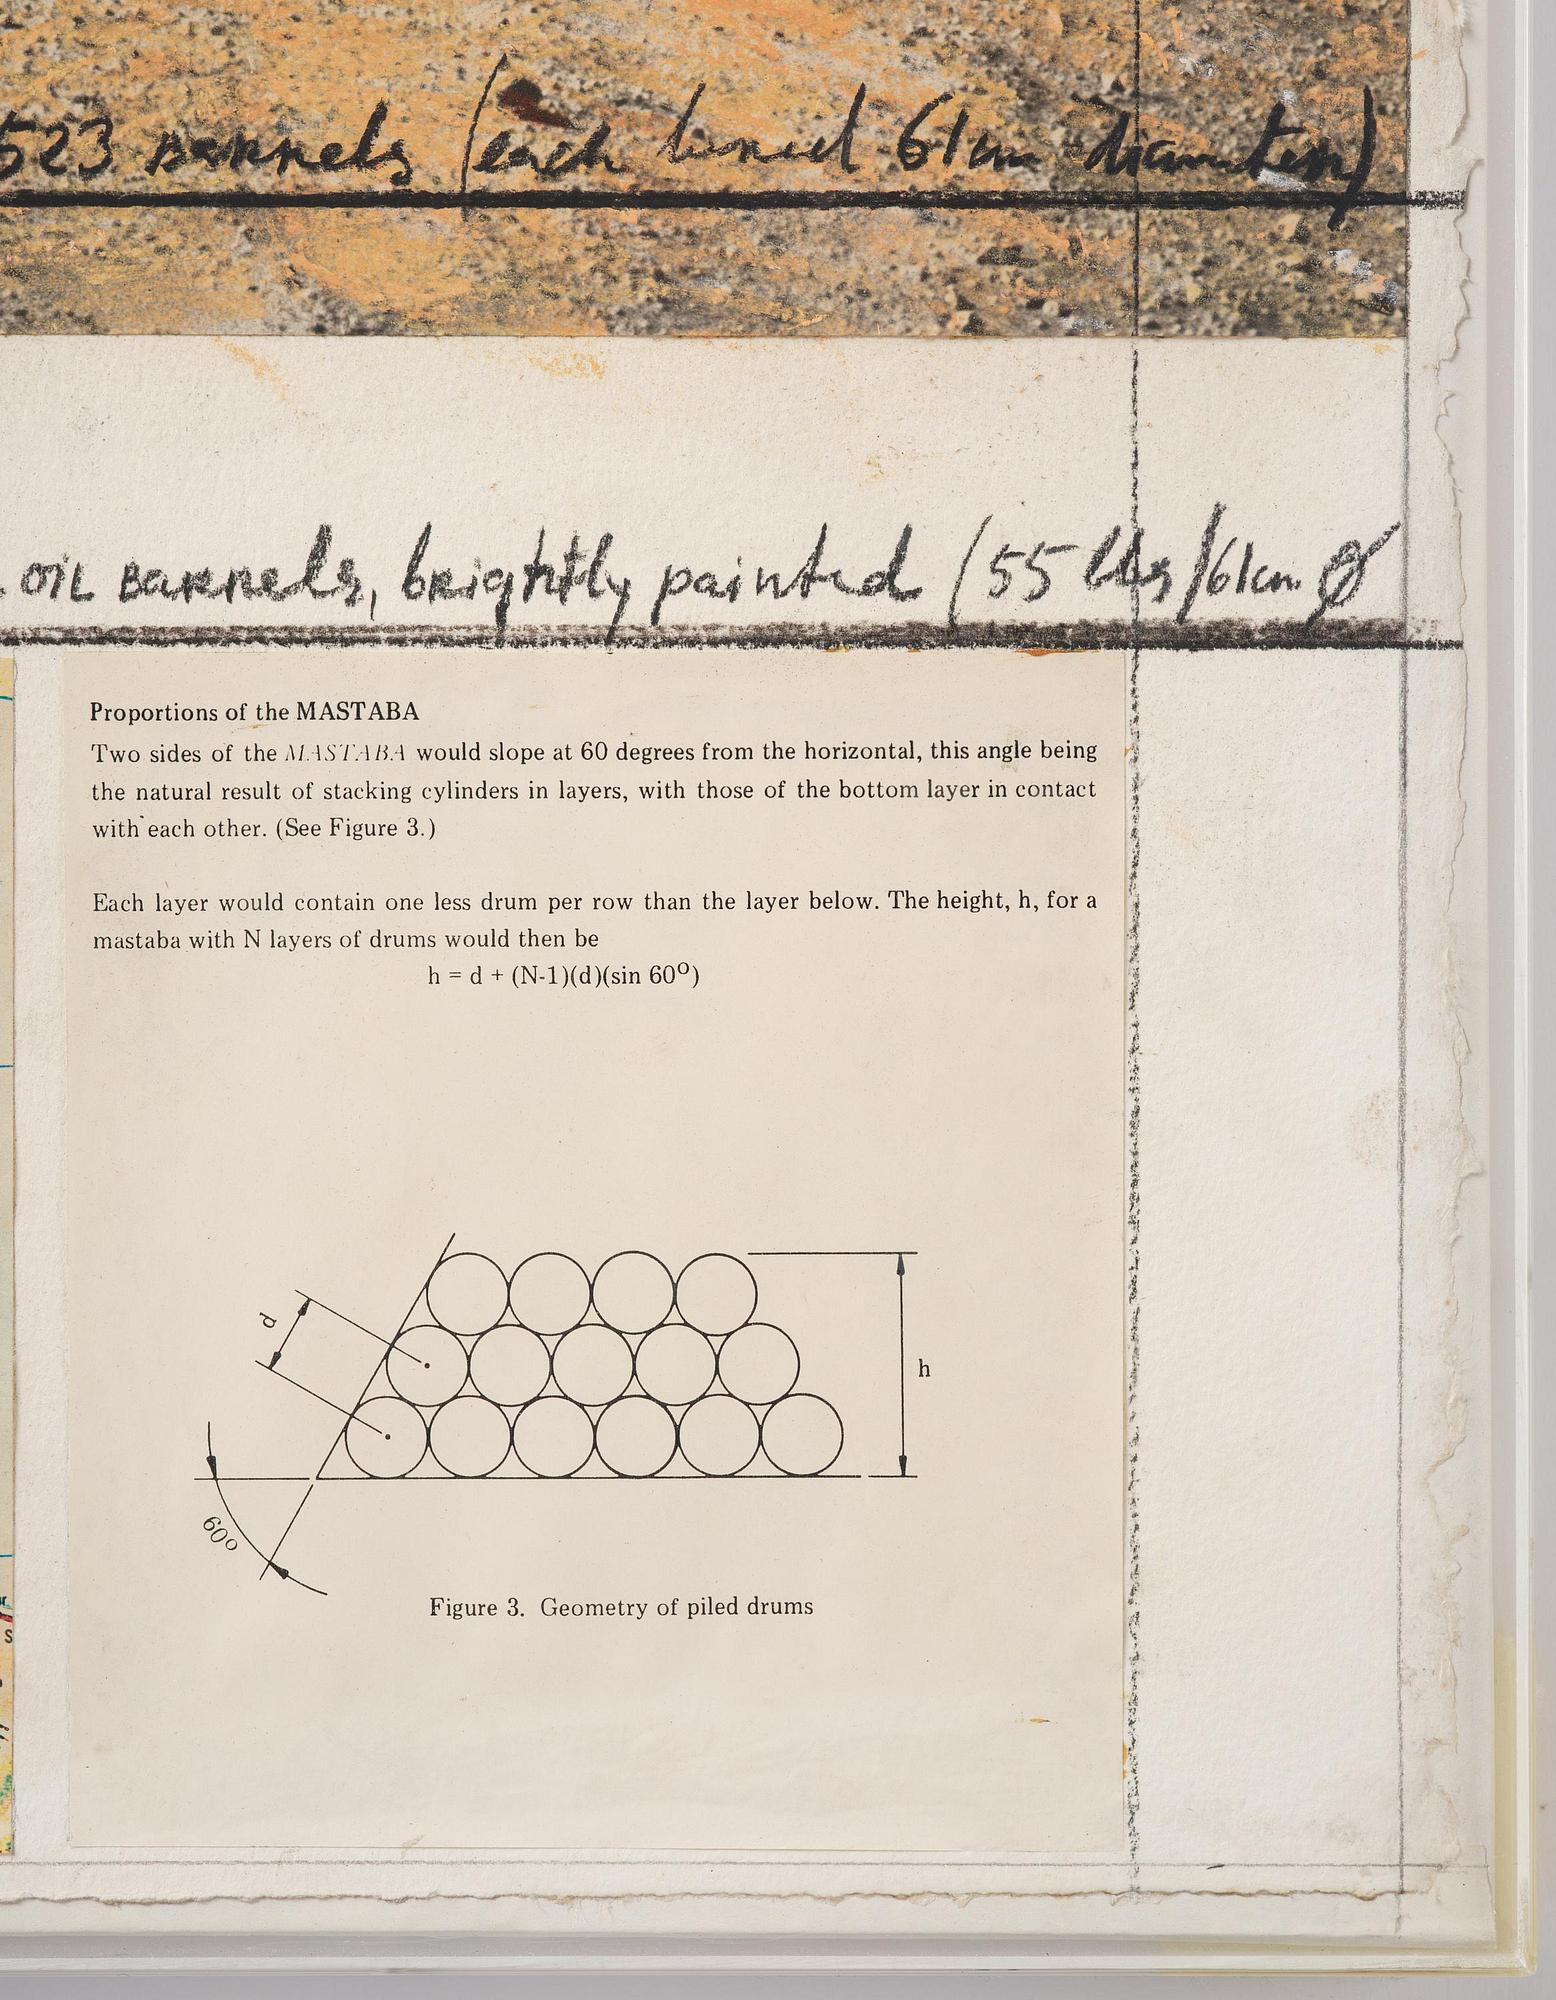 523 BARRELS (each barrel 61cm diameter)
OIL BARRELS, brightly painted (55 lbs/61cm. Ø
Proportions of the MASTABA
Two sides of the MASTABA would slope at 60 degrees from the horizontal, this angle being
the natural result of stacking cylinders in layers, with those of the bottom layer in contact
with each other. (See Figure 3.)
Each layer would contain one less drum per row than the layer below. The height, h, for a
mastaba with N layers of drums would then be
h = d + (N-1)(d)(sin 60°)
d
h
60°
Figure 3. Geometry of piled drums
S